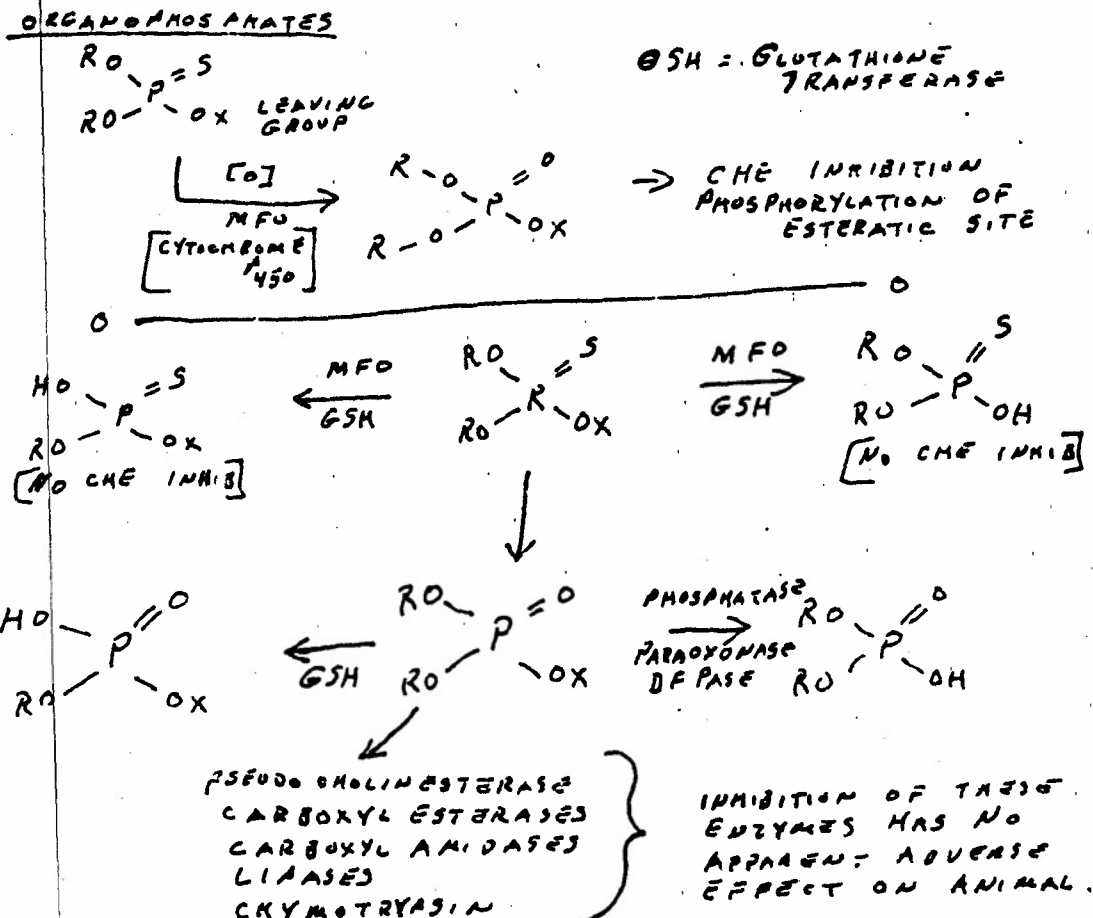 ORGANOPHOSPHATES
GSH = GLUTATHIONE
TRANSFERASE
RO
S
P
RO
OX
LEAVING
GROUP
[O]
MFO
[CYTOCHROME
P450]
R O
O
P
R O
OX
→ CHE INHIBITION
PHOSPHORYLATION OF
ESTERATIC SITE
O
O
HO
S
P
RO
OX
[NO CHE INHIB]
MFO
GSH
RO
S
R
RO
OX
MFO
GSH
RO
S
P
RO
OH
[NO CHE INHIB]
HO
O
P
RO
OX
GSH
RO
O
P
RO
OX
PHOSPHATASE
PARAOXONASE
DFPASE
RO
O
P
RO
OH
PSEUDO CHOLINESTERASE
CARBOXYL ESTERASES
CARBOXYL AMIDASES
LIPASES
CHYMOTRYPSIN
INHIBITION OF THESE
ENZYMES HAS NO
APPARENT ADVERSE
EFFECT ON ANIMAL.